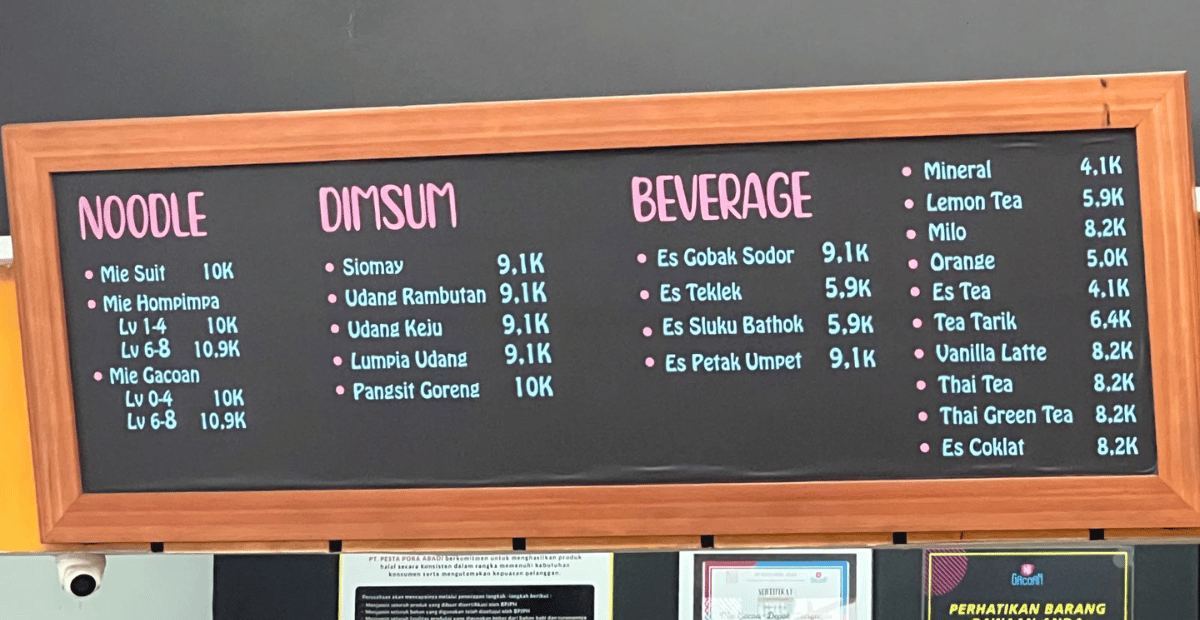 NOODLE
• Mie Suit 10K
• Mie Hompimpa
Lv 1-4 10K
Lv 6-8 10,9K
• Mie Gacoan
Lv 0-4 10K
Lv 6-8 10,9K
DIMSUM
• Siomay 9,1K
• Udang Rambutan 9,1K
• Udang Keju 9,1K
• Lumpia Udang 9,1K
• Pangsit Goreng 10K
BEVERAGE
• Es Gobak Sodor 9,1K
• Es Teklek 5,9K
• Es Sluku Bathok 5,9K
• Es Petak Umpet 9,1K
• Mineral 4,1K
• Lemon Tea 5,9K
• Milo 8,2K
• Orange 5,0K
• Es Tea 4,1K
• Tea Tarik 6,4K
• Vanilla Latte 8,2K
• Thai Tea 8,2K
• Thai Green Tea 8,2K
• Es Coklat 8,2K
PT. PESTA PORA ABADI berkomitmen untuk menghasilkan produk
halal secara konsisten dalam rangka memenuhi kebutuhan
konsumen serta mengutamakan kepuasan pelanggan.
Perusahaan akan mencapainya melalui penerapan langkah-langkah berikut :
SERTIFIKAT
GACOAN
PERHATIKAN BARANG
BAWAAN ANDA